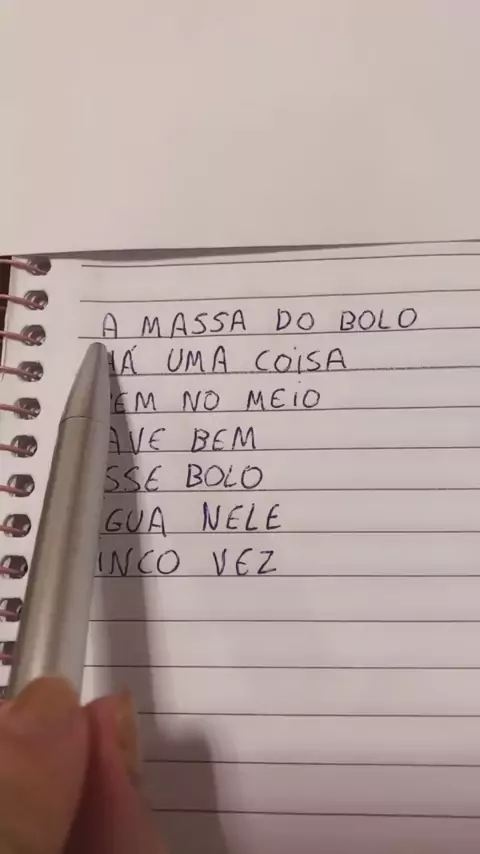 A MASSA DO BOLO
HÁ UMA COISA
EM NO MEIO
AVE BEM
SSE BOLO
GUA NELE
INCO VEZ